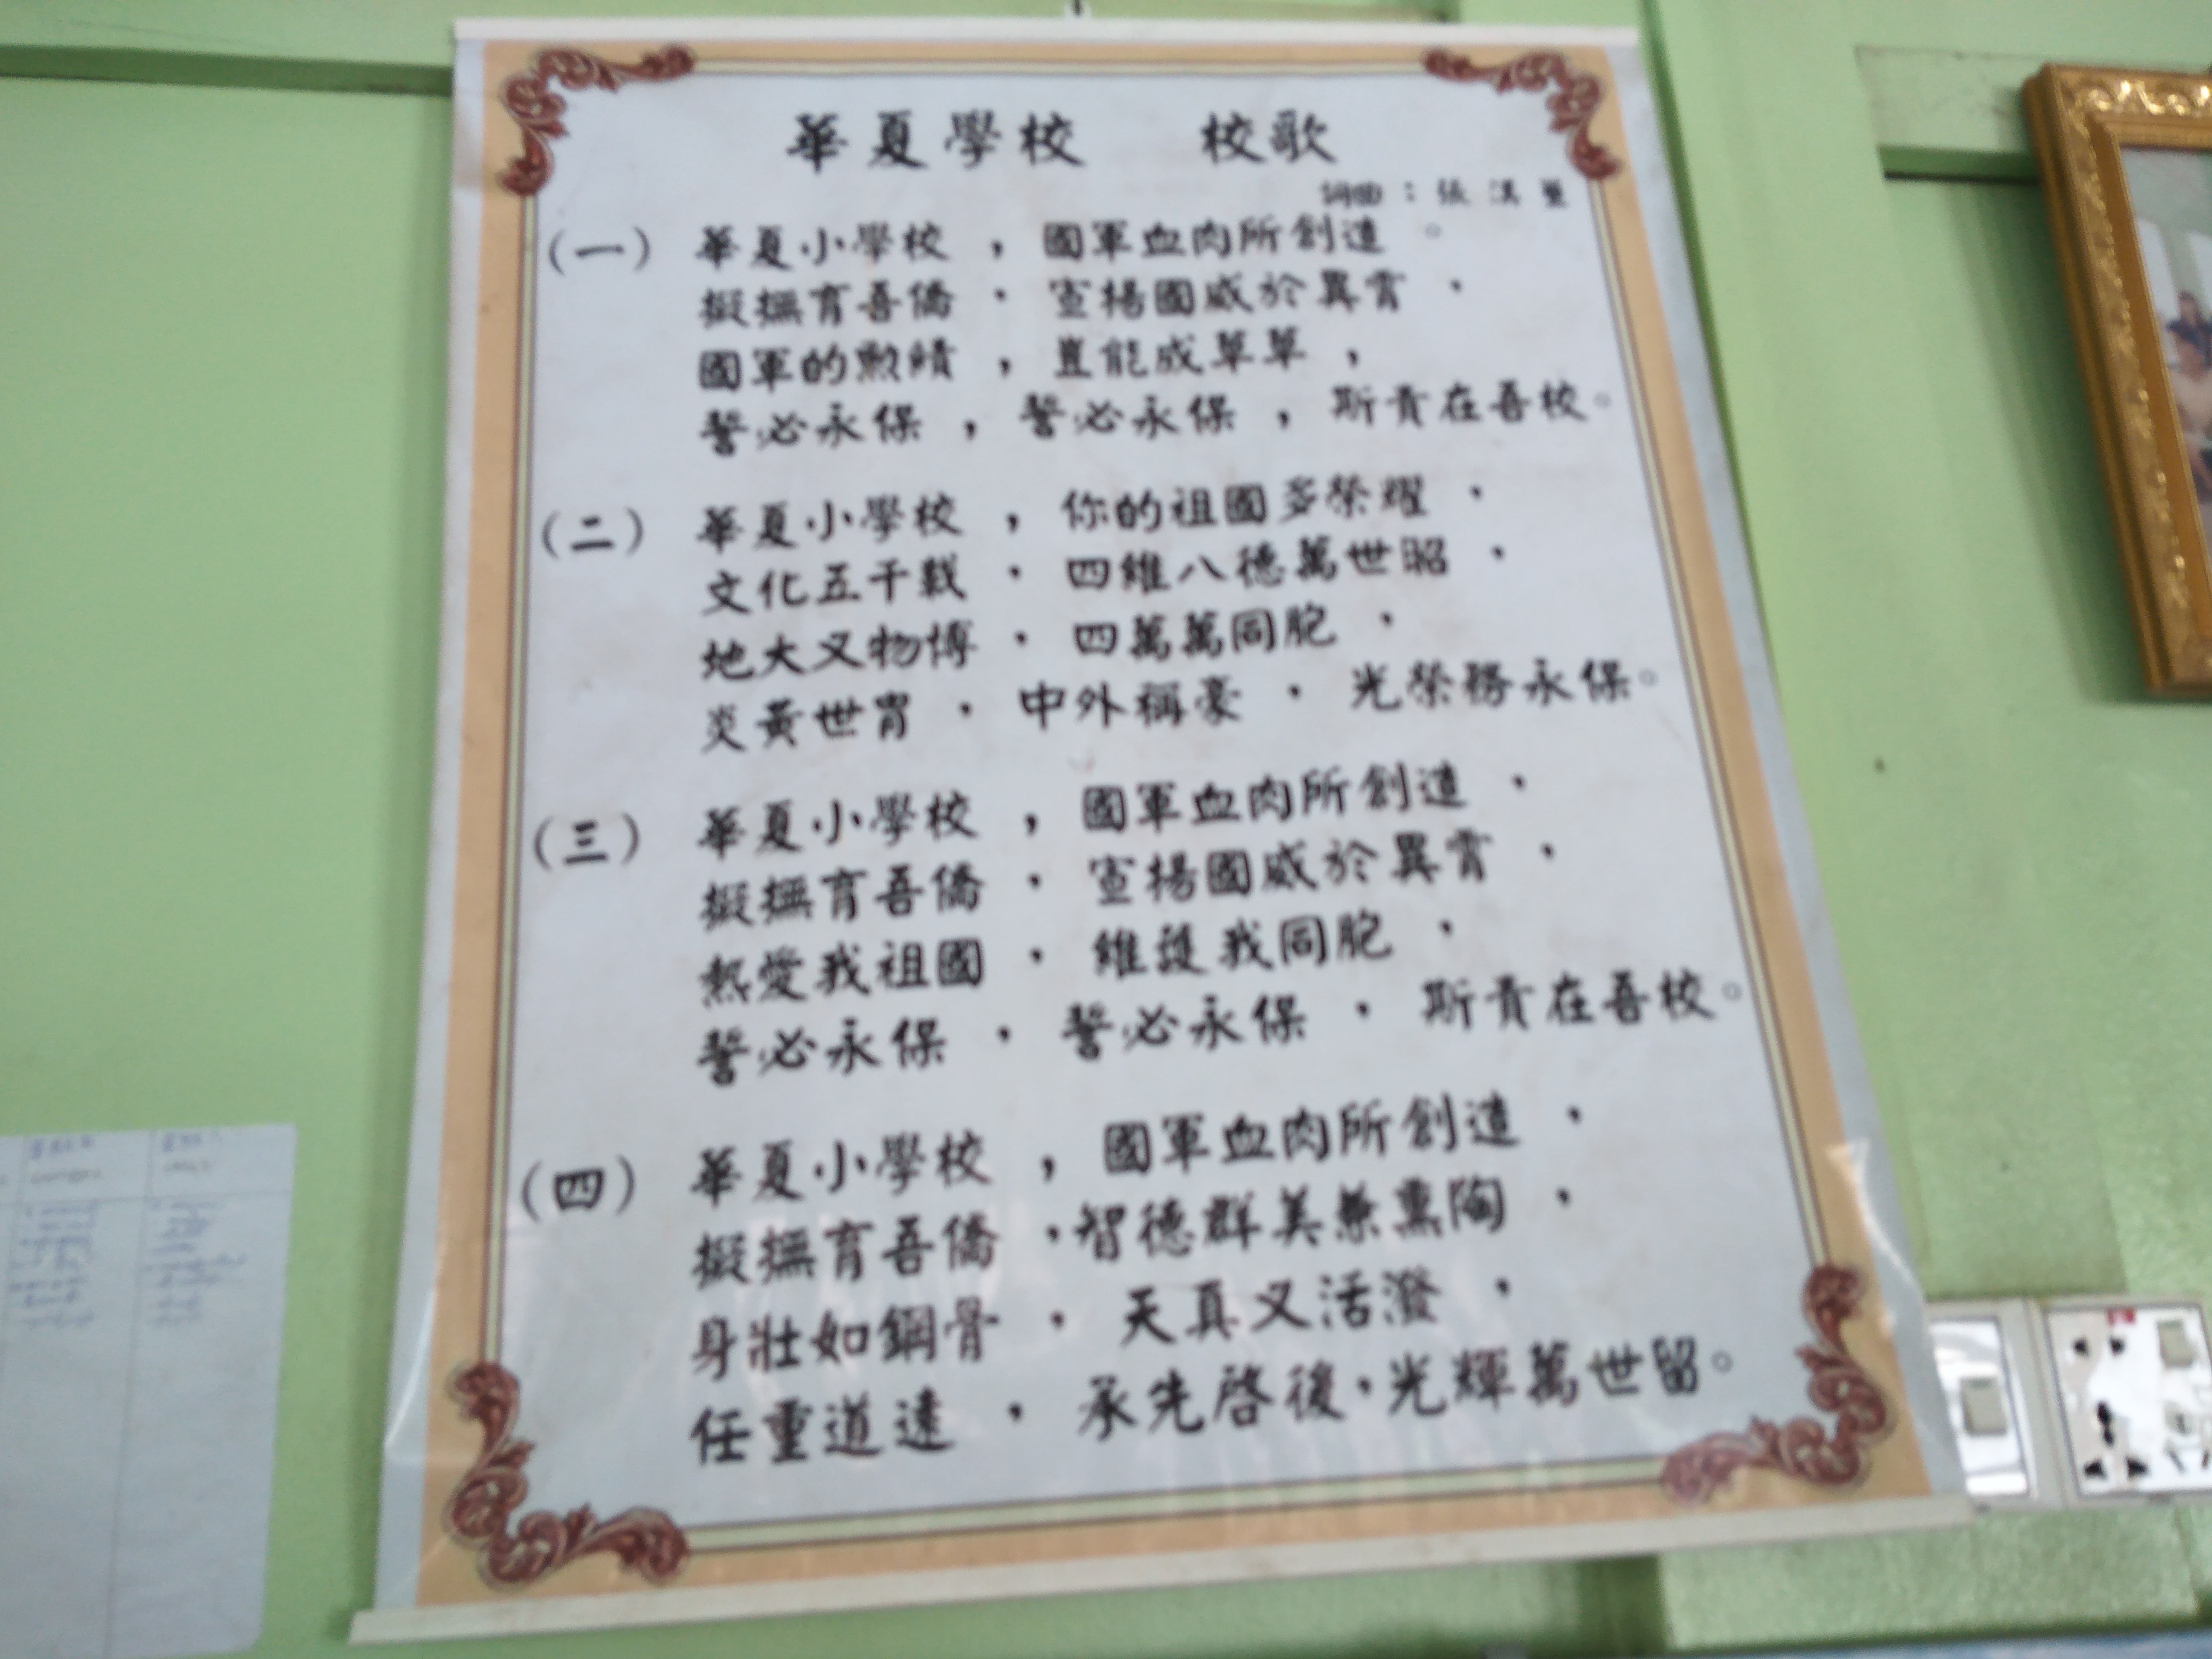 華夏學校 校歌
詞曲：張
(一) 華夏小學校，國軍血肉所創造。
擬撫育吾僑，宣揚國威於異宵，
國軍的勲績，豈能成草草，
誓必永保，誓必永保，斯責在吾校。
(二) 華夏小學校，你的祖國多榮耀，
文化五千載，四維八德萬世昭，
地大又物博，四萬萬同胞，
炎黃世胄，中外稱豪，光榮務永保。
(三) 華夏小學校，國軍血肉所創造，
擬撫育吾僑，宣揚國威於異宵，
熱愛我祖國，維護我同胞，
誓必永保，誓必永保，斯責在吾校。
(四) 華夏小學校，國軍血肉所創造，
擬撫育吾僑，智德群美兼熏陶，
身壯如鋼骨，天真又活潑，
任重道遠，承先啓後，光輝萬世留。